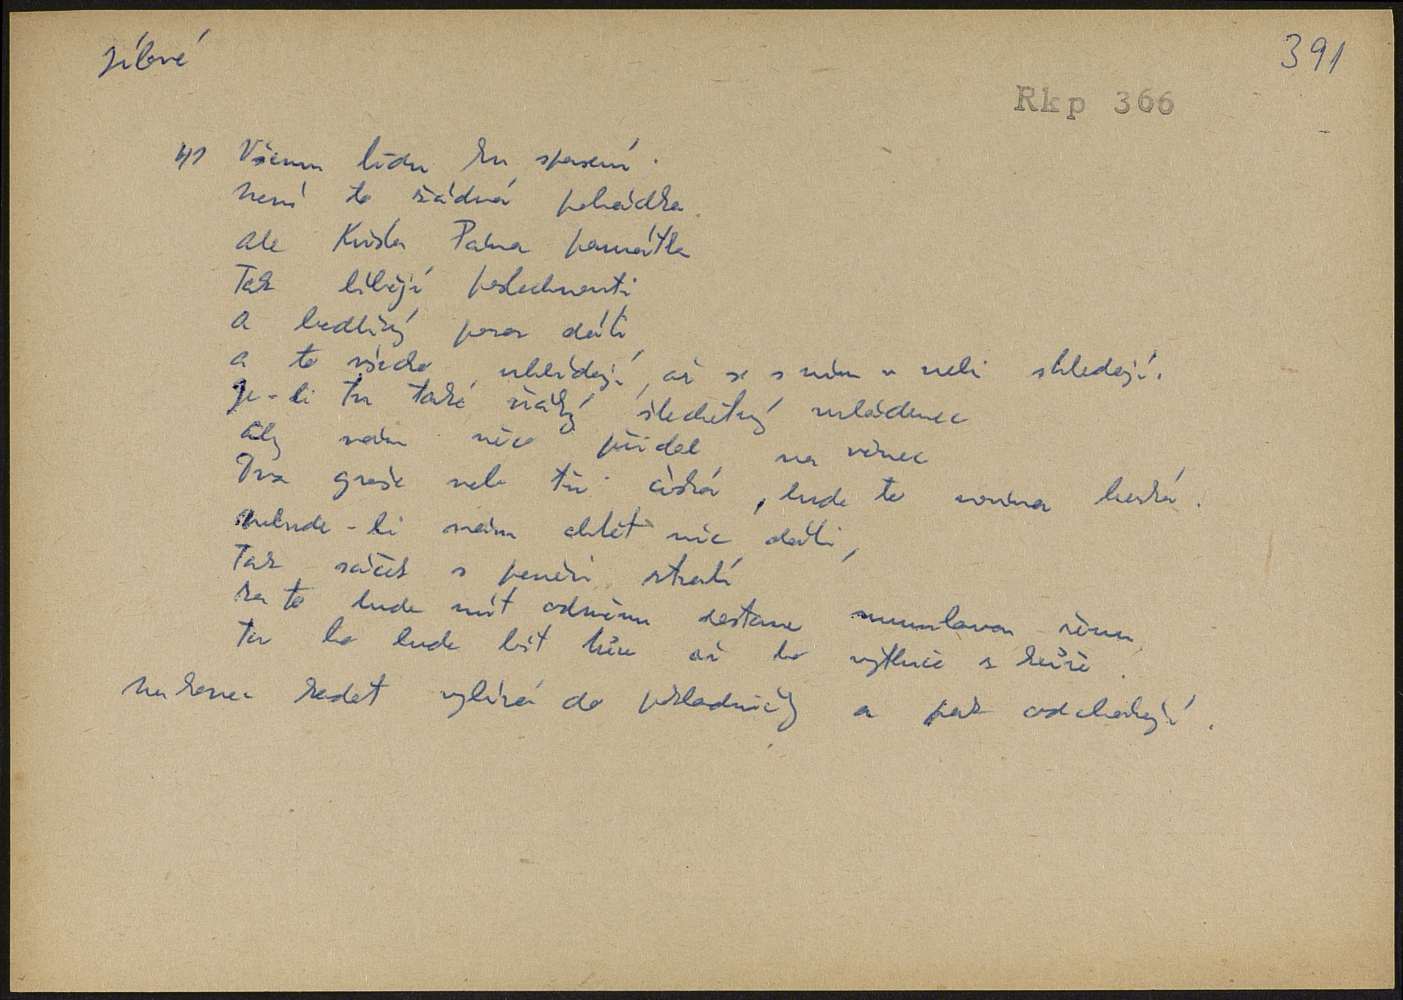 Jílové
391
Rkp 366
41 Všemu lidu ku spasení.
není to žádná pohádka
ale Krista Pána památka
Tak libějí poslechnouti
a bedlivý pozor dáti
a to všecko uhlídají, až se s ním v nebi shledají.
Je-li tu také ňáký šlechetný mládenec
aby nám něco přidal na věnec
Dva groše neb tři čistá, bude to rovina hezká.
nebude-li nám chtět nic dáti,
Tak sáček s penězi ztratí
za to bude mít od něho
Ta ho bude bít až ho vytluče z kůže.
na konec kadet vybírá do pokladničky a pak odcházejí.